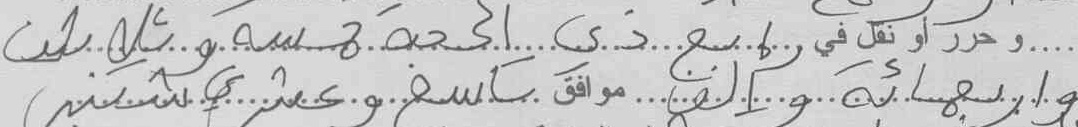 .....و حرر أو نقل في رابع ذي الحجة خمسة و ثلاثين
و اربعمائة و الف... موافق تاسع و عشري شتنبر